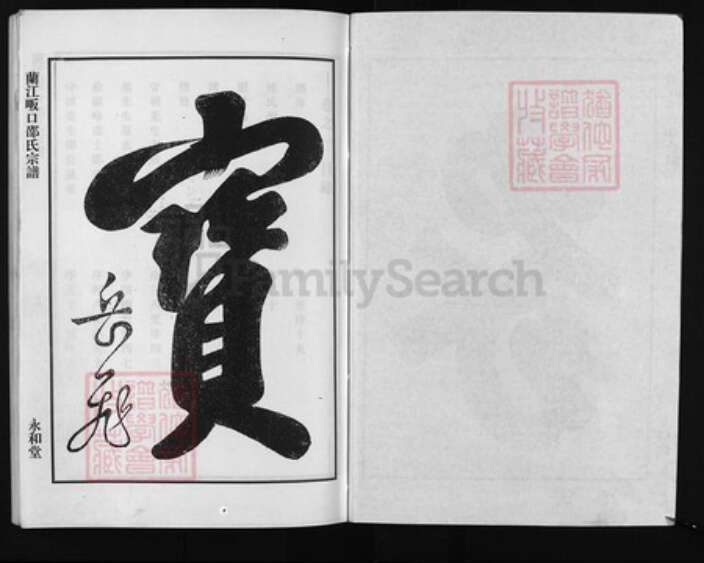 蘭江畈口邵氏宗譜
永和堂
寳
岳飛
猶他家
譜學會
收藏
猶他家
譜學會
收藏
FamilySearch